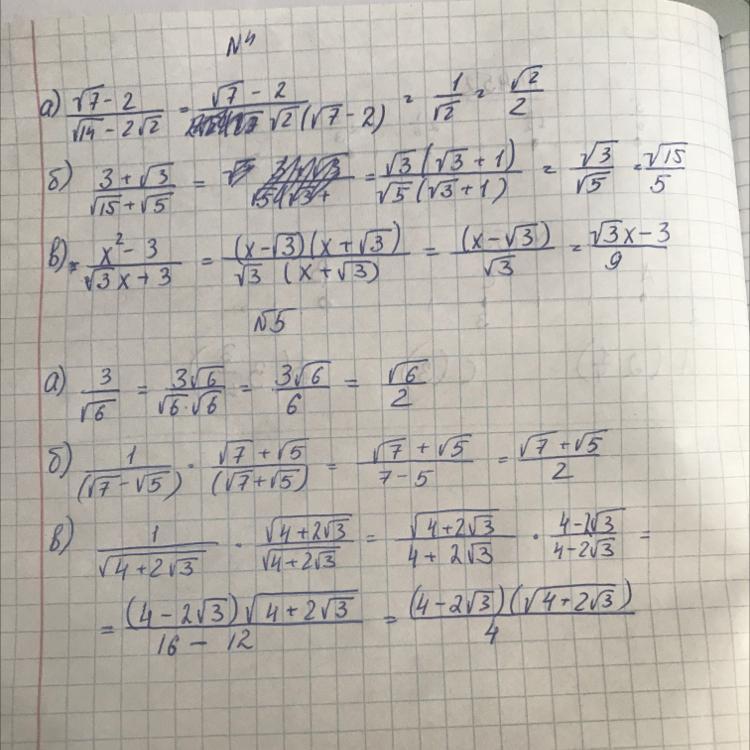 №4
а) (√7 - 2)/(√14 - 2√2) = (√7 - 2)/(√2(√7 - 2)) = 1/√2 = √2/2
б) (3 + √3)/(√15 + √5) = (√3(√3 + 1))/(√5(√3 + 1)) = √3/√5 = √15/5
в) (x² - 3)/(√3x + 3) = ((x - √3)(x + √3))/(√3 (x + √3)) = (x - √3)/√3 = (√3x - 3)/9
№5
а) 3/√6 = 3√6/(√6·√6) = 3√6/6 = √6/2
б) 1/(√7 - √5) · (√7 + √5)/(√7 + √5) = (√7 + √5)/(7 - 5) = (√7 + √5)/2
в) 1/√(4 + 2√3) · √(4 + 2√3)/√(4 + 2√3) = √(4 + 2√3)/(4 + 2√3) · (4 - 2√3)/(4 - 2√3) =
= ((4 - 2√3)√(4 + 2√3))/(16 - 12) = ((4 - 2√3)(√(4 + 2√3)))/4